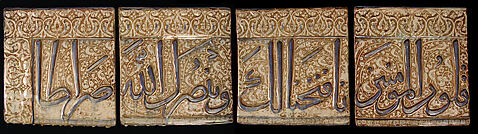 قلوب المومنين انا فتحنا لك وينصرك الله صراطا